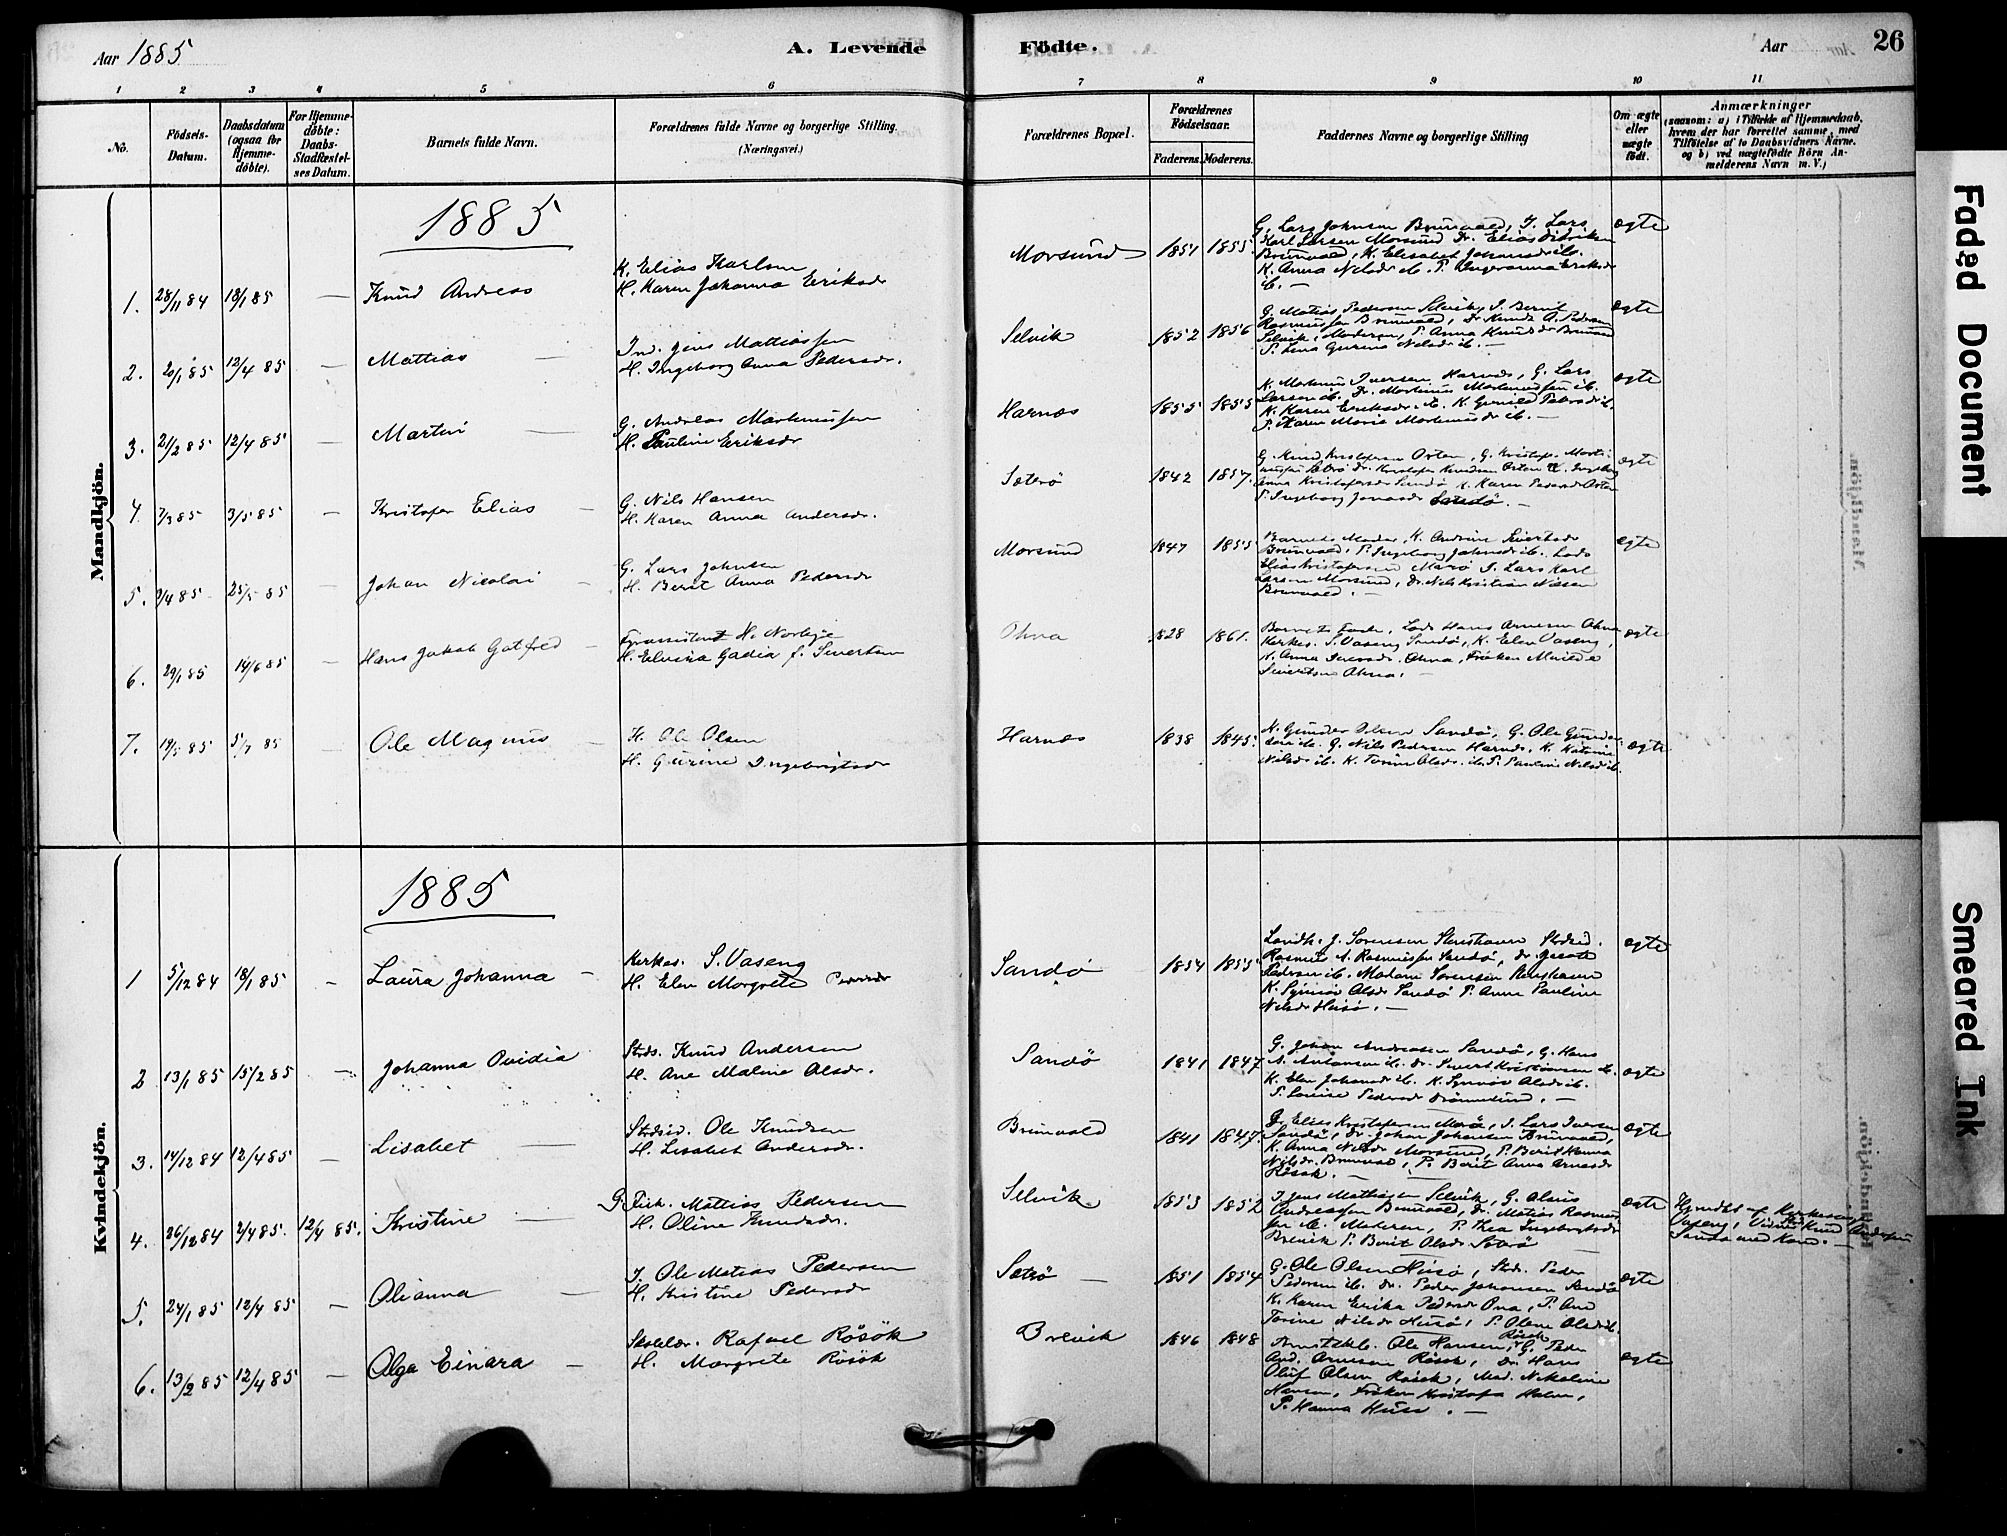 Aar 1885
A. Levende
Födte.
Aar
26
1 2 3 4 5 6 7 8 9 10 11
No.
Födsels-
Datum.
Daabsdatum
(ogsaa for
Hjemme-
døbte).
For Hjemme-
døbte:
Daabs-
Stadfæstel-
ses Datum.
Barnets fulde Navn.
Forældrenes fulde Navne og borgerlige Stilling.
(Næringsvei.)
Forældrenes Bopæl.
Forældrenes
Födselsaar.
Faderens. Moderens.
Faddernes Navne og borgerlige Stilling
Om ægte
eller
uægte
födt.
Anmærkninger
(saasom: a) i Tilfælde af Hjemmedaab,
hvem der har forrettet samme, med
Tilföielse af to Daabsvidners Navne.
og b) ved uægtefödte Börn An-
melderens Navn m. V.)
Mandkjön.
1885
1. 28/11 84 18/1 85 — Knud Andreas
K. Elias Karlsen
H. Karen Johanna Eriksdr
Morsund 1851 1855.
G. Lars Johnsen Brunvold, I. Lars
Karl Larsen Morsund Dr. Elias Didriksen
Brunvold, K. Elisabet Johansdr ib.
K. Anna Nilsdr ib. P. Ingeranna Eriksdr
ib. —
ægte
2. 20/1 85 12/4 85 — Mattias —
Ind. Jens Mattiassen
H. Ingeborg Anna Pedersdr.
Selvik 1852 1856
G. Matias Pedersen Selvik, I. Bernt
Rasmussen Brunvold, Dr. Knud A. Pedersen
Selvik, Moderen, P. Anna Knudsdr Brunvold
P. Lina Gurina Nilsdr ib. —
ægte
3. 21/2 85 12/4 85 — Martin —
G. Andreas Martinussen
H. Pauline Eriksdr
Harnæs 1855 1855
K. Martinus Iversen Harnæs, G. Lars
Larsen ib. Dr. Martinus Martinussen ib.
K. Karen Eriksdr. ib. K. Gunild Petersdr ib.
P. Karen Marie Martinusdr ib. —
ægte
4. 7/3 85 3/5 85 — Kristofer Elias —
G. Nils Hansen
H. Karen Anna Andersdr.
Sæterö 1842 1857.
G. Knud Kristofersen Orten, G. Kristofer Marti
nussen Sæterö Dr. Kristofer Knudsen Orten K. Ingeborg
Anna Kristofersdr Sandö K. Karen Pedersdr Orten
P. Ingeborg Jonasdr Sandö. —
ægte
5. 3/4 85 25/5 85 — Johan Nicolai —
G. Lars Johnsen
H. Berit Anna Pedersdr
Morsund 1847 1855
Barnets Moder, K. Andrine Sivertsdr
Brunvold, P. Ingeborg Johnsdr ib. Lods
Elias Kristofersen Marö I. Lars Karl
Larsen Morsund, Dr. Nils Kristian Nilsen
Brunvold. —
ægte
6. 29/1 85 14/6 85 — Hans Jakob Gotfred —
Fyrassistent H. Norbye
H. Elvina Gadia f. Sivertsen
Ohna 1828 1861.
Barnets Fader, Lods Hans Arnesen Ohna
Kerkes. S. Vaseng Sandö, K. Elen Vaseng,
K. Anna Iversdr. Ohna, Fröken Matilde
Sivertsen Ohna. —
ægte
7. 19/5 85 5/7 85 — Ole Magnus —
H. Ole Olsen
H. Gurine Ingebrigtsdr
Harnæs 1838 1845.
K. Gunder Olsen Sandö, G. Ole Gunder
sen ib. G. Nils Pedersen Harnæs, K. Katrine
Nilsdr ib. K. Torine Olsdr. ib. P. Pauline Nilsdr ib.
ægte
Kvindekjön.
1885
1 5/12 84 18/1 85 — Laura Johanna —
Kerkes. S. Vaseng
H. Elen Margrete
Sandö — 1854 1855
Landh. J. Sorensen Stenshavn Strdsid.
Rasmus A. Rasmussen Sandö, Dr.
Pedersen ib. Madam Sorensen Stenshavn
K. Synnöv Olsdr Sandö P. Anne Pauline
Nilsdr Husö. —
ægte
2 13/1 85 15/2 85 — Johanna Ovidia
Strds. Knud Andersen
H. Ane Malene Olsdr.
Sandö 1841 1847
G. Johan Andreasen Sandö, G. Hans
A. Antonsen ib. Dr. Sivert Kristiansen ib.
K. Elen Johansdr ib. K. Synnöv Olsdr ib.
P. Louise Pedersdr Drönnesund. —
ægte
3. 14/12 84 12/4 85 — Lisabet —
Strdsid. Ole Knudsen
H. Lisabet Andersdr.
Brunvold 1841 1847.
G. Elias Kristofersen Marö, I. Lars Iversen
Sandö, Dr. Johan Johansen Brunvold,
K. Anna Nilsdr Morsund, P. Berit Hanna
Nilsdr. Brunvold, P. Berit Anna Arnesdr
Rösok. —
ægte
4. 26/12 84 2/4 85. 12/4 85. Kristine —
G. Fisk. Mattias Pedersen
H. Oline Knudsdr.
Selvik 1853 1852
I. Jens Mathiasen Selvik, G.
Andreassen Brunvold, Dr. Matias Rasmus
sen ib. Moderen, P. Thea Ingebrigtsdr
Brevik P. Berit Olsdr Sæterö —
ægte
Hjemdbt. af Kerkesanger
Vaseng, Vidner: Strds. Knud Andersen
Sandö med Kone. —
5. 24/1 85 12/4 85 — Olianna —
I. Ole Matias Pedersen
H. Kristine Pedersdr
Sæterö — 1851 1854
G. Ole Olsen Husö, Strds. Peder
Pedersen ib. Dr. Peder Johansen Sandö
K. Karen Erika Pedersdr Ona, P. Ane
Torine Nilsdr Husö, P. Olene Olsdr ib.
ægte
6. 13/2 85 12/4 85 — Olga Einara —
Skolelær. Rafael Rösök
H. Margrete Rösök
Brevik 1846 1848
Amtskl. Ole Hansen, Rösok G. Peder
And. Arnesen Rösok, Dr. Hans
Oluf Olsen Rösok, Mad. Nikoline
Hansen, Fröken Kristofa Holm,
P. Hanna Huse. —
ægte
Faded Document
Smeared Ink